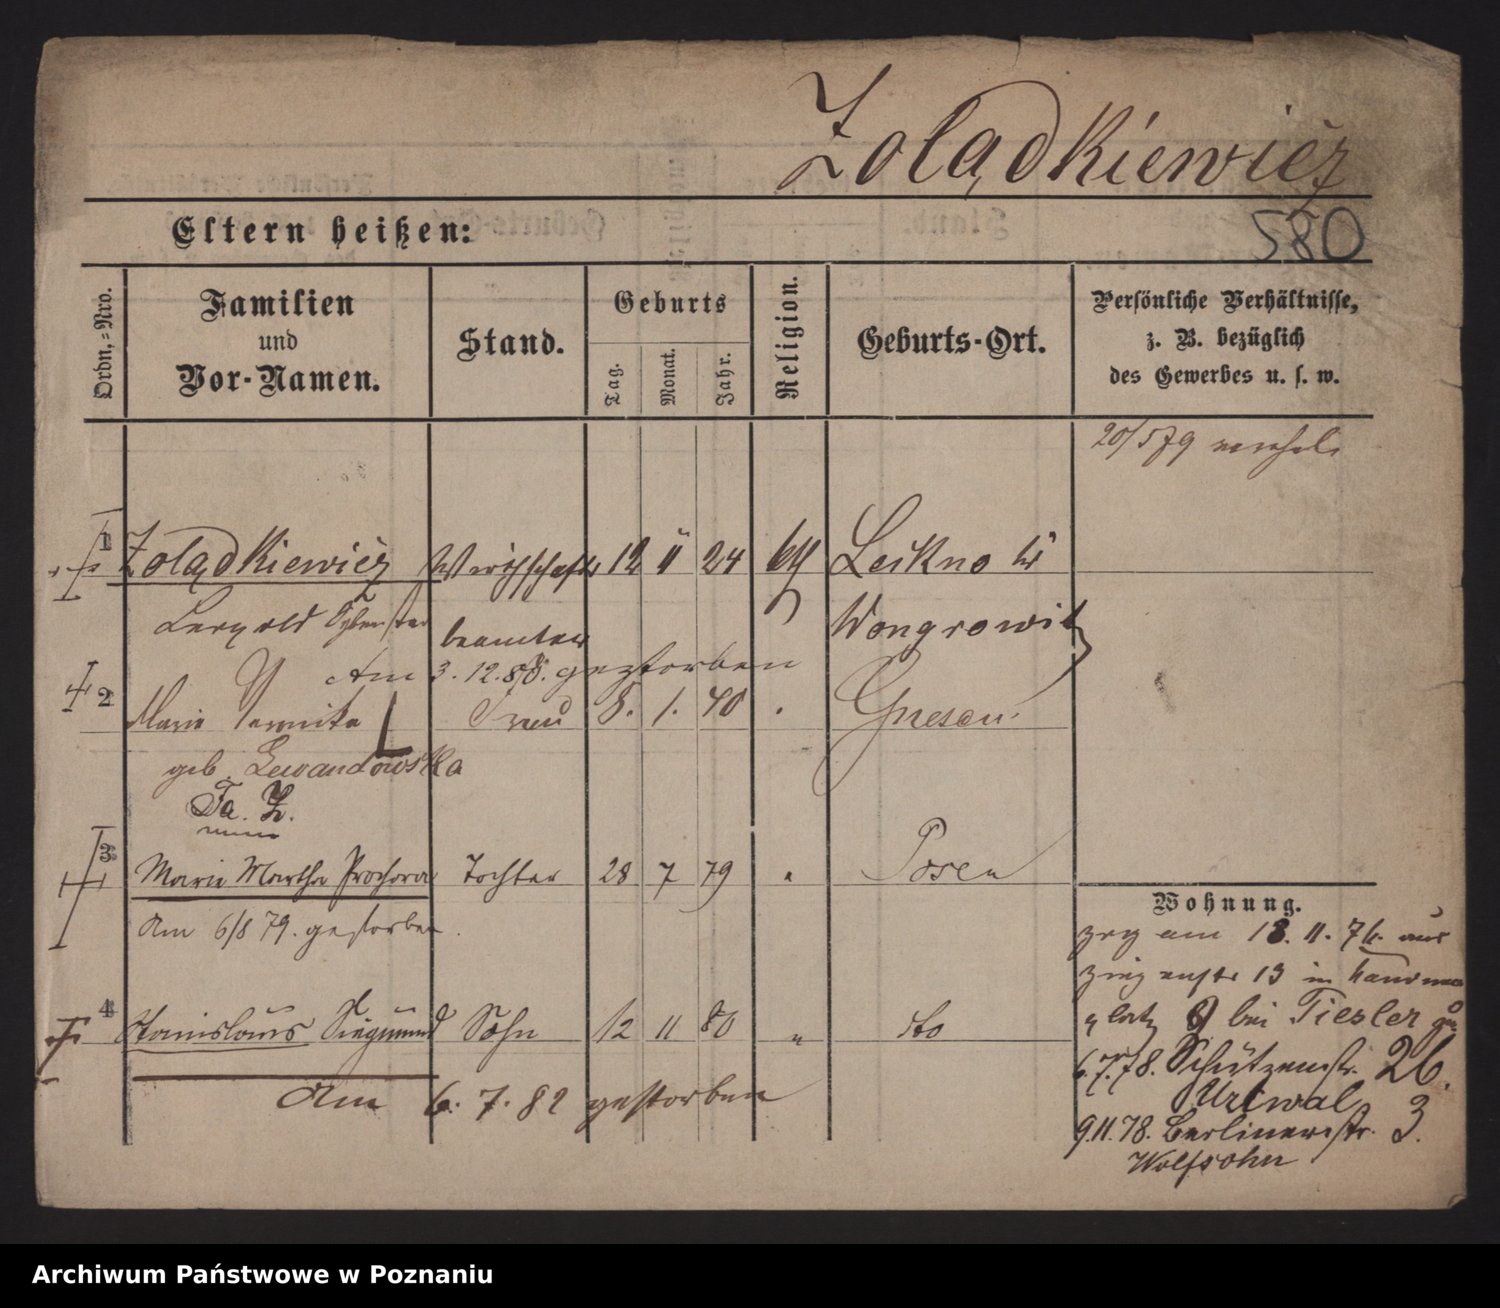 Żolądkiewicz
580
Eltern heißen:
Ordn.-Nro.
Familien
und
Vor-Namen.
Stand.
Geburts
Tag.
Monat.
Jahr.
Religion.
Geburts-Ort.
Persönliche Verhältnisse,
z. B. bezüglich
des Gewerbes u. s. w.
20/5 79
1 Żolądkiewicz Wirthschafts 12 11 24 Leikno
Leopold beamter Wongrowitz
Am 3. 12. 88. gestorben
2 Marie Frau 8. 1. 40 Gnesen
geb. Lewandowska
Fa. Z.
3 Marie Martha Tochter 28 7 79 " Posen
Am 6/8 79. gestorben.
4 Stanislaus Siegmund Sohn 12 11 80 " dto
Am 6. 7. 82 gestorben
Wohnung.
zog am 18. 11. 76. aus
13 in
platz 9 bei Tiesler
6.7.78. Schützenstr. 26.
9.11.78. Berlinerstr. 3.
Wolfsohn
Archiwum Państwowe w Poznaniu